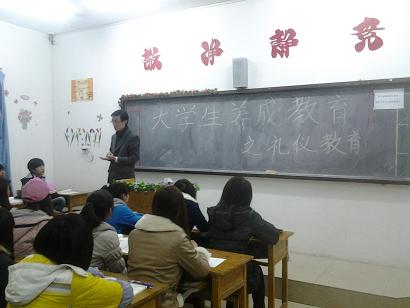 敬净静竞
大学生养成教育
之礼仪教育